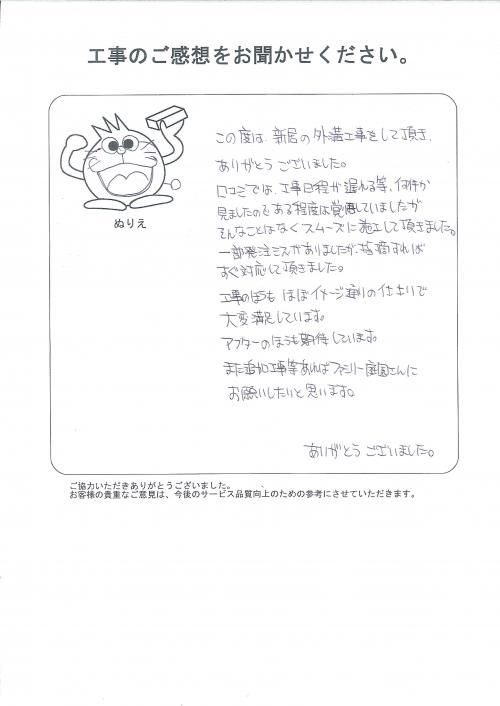 工事のご感想をお聞かせください。
ぬりえ
この度は、新居の外溝工事をして頂き、
ありがとうございました。
口コミでは、工事日程が遅れる等、何件か
見ましたのである程度は覚悟していましたが
そんなことはなくスムーズに施工して頂きました。
一部発注ミスがありましたが、指摘すれば
すぐ対応して頂きました。
工事のほうも ほぼイメージ通りの仕上りで
大変満足しています。
アフターのほうも期待しています。
また追加工事等あればファミリー庭園さんに
お願いしたいと思います。
ありがとうございました。
ご協力いただきありがとうございました。
お客様の貴重なご意見は、今後のサービス品質向上のための参考にさせていただきます。